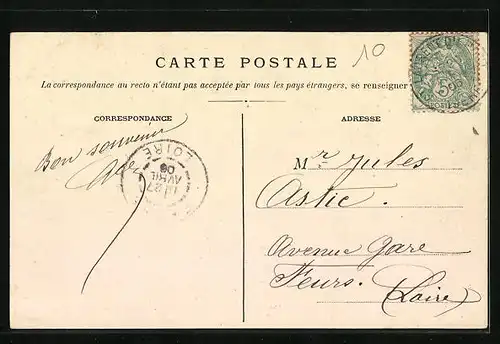 10
CARTE POSTALE
La correspondance au recto n'étant pas acceptée par tous les pays étrangers, se renseigner
CORRESPONDANCE
ADRESSE
Bon souvenir
LOIRE
27
AVRIL
06
Mr Jules
Astic.
Avenue Gare
Feurs.
(Loire)